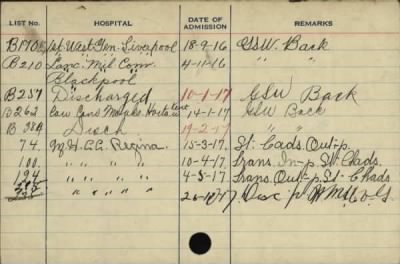 LIST NO. HOSPITAL DATE OF ADMISSION REMARKS
B170 1st West. Gen. Liverpool 18-9-16 GSW. Back
B210 Lanc. Mil. Conv. 4-11-16 " "
Blackpool
B257 Discharged 10-1-17 GSW Back
B262 14-1-17 GSW Back
B Disch 19-2-17
74. M.H.C.C. Regina. 15-3-17. St. Cads. Out-p.
100. " " " 10-4-17. Trans. In-p. St. Chads.
194 " " " 4-5-17 Trans. Out-p. St. Chads
" " " " Disc